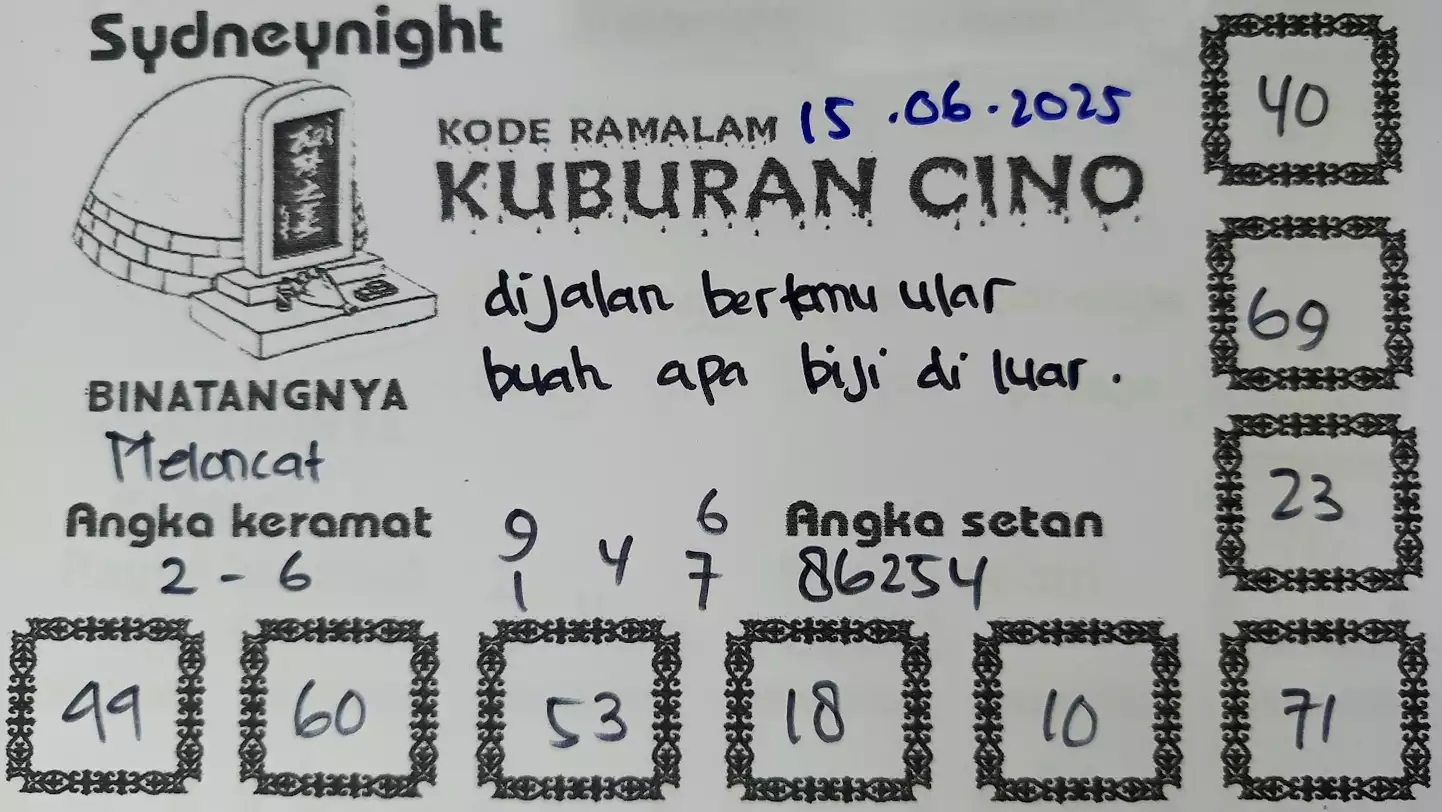 Sydneynight
KODE RAMALAM 15.06.2025
KUBURAN CINO
dijalan bertemu ular
buah apa biji di luar.
BINATANGNYA
Meloncat
Angka keramat
2 - 6
9 4 6
1 7
Angka setan
86254
40
69
23
99 60 53 18 10 71